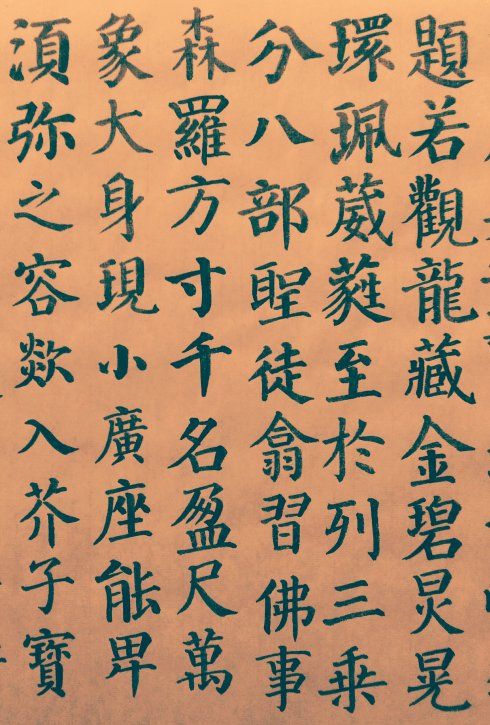 題若觀龍藏金碧炅晃
環珮葳蕤至於列三乘
分八部聖徒翕習佛事
森羅方寸千名盈尺萬
象大身現小廣座能卑
須弥之容欻入芥子寶